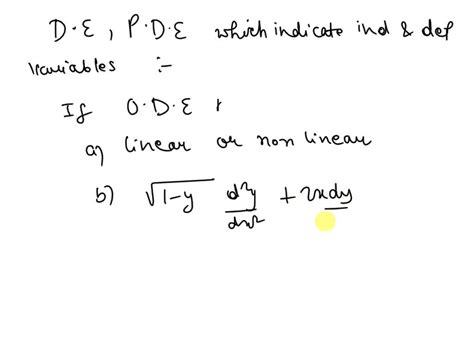 D·E, P·D·E which indicate ind & def
variables :-
If O·D·E
a) linear or non linear
b) √1-y d²y/dx² + 2xdy